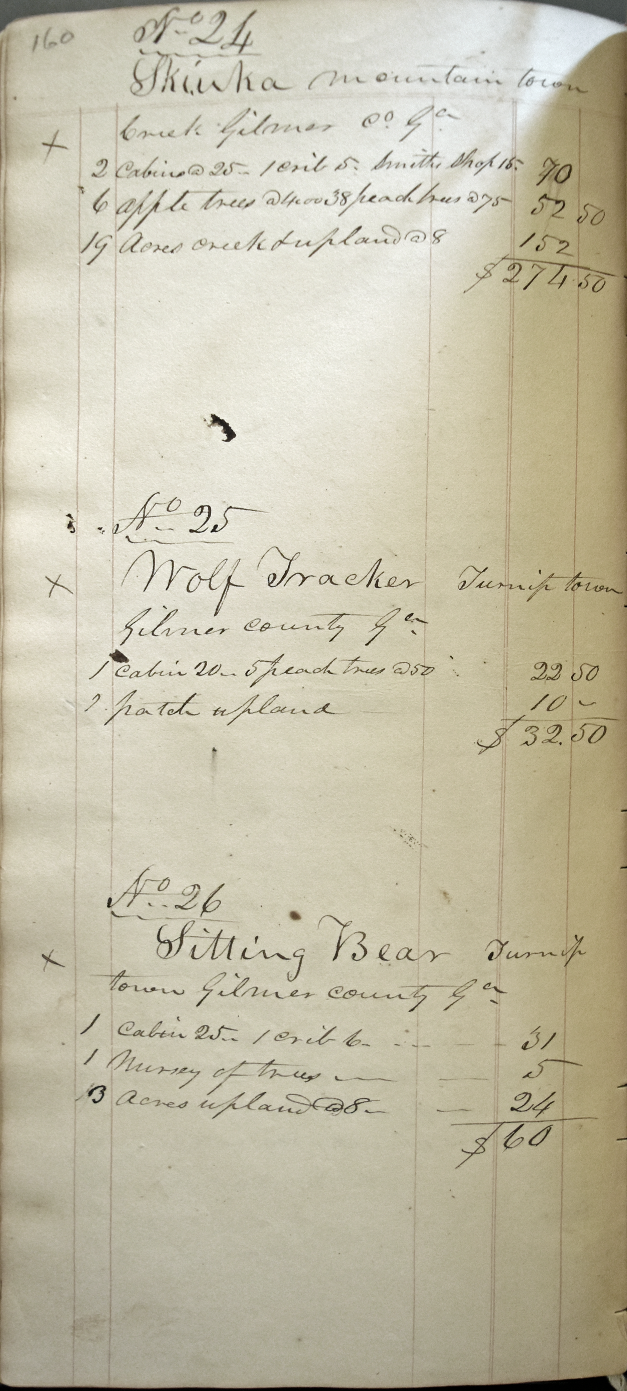 160
No 24
Skiuka mountain town
x Creek Gilmer Co Ga
2 Cabins @ 25- 1 crib 5- Smiths Shop 15- 70
6 apple trees @4.00 38 peach trees @75 52 50
19 Acres creek & upland @8 152
$274.50
No 25
x Wolf Tracker Turnip town
Gilmer county Ga
1 cabin 20- 5 peach trees @50 22 50
1 patch upland 10 -
$32.50
No 26
x Sitting Bear Turnip
town Gilmer county Ga
1 Cabin 25- 1 crib 6- 31
1 Nursey of trees 5
3 Acres upland @8- 24
$60